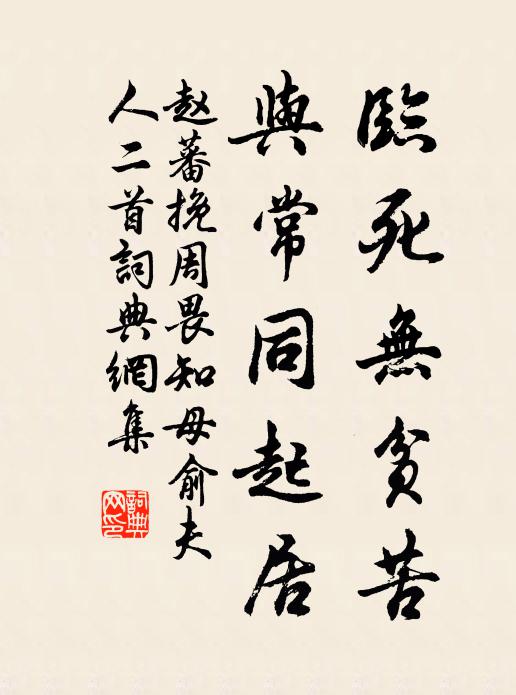 臨死無貧苦
與常同起居
趙蕃挽周畏知母俞夫
人二首詞典網集
詞典
网印